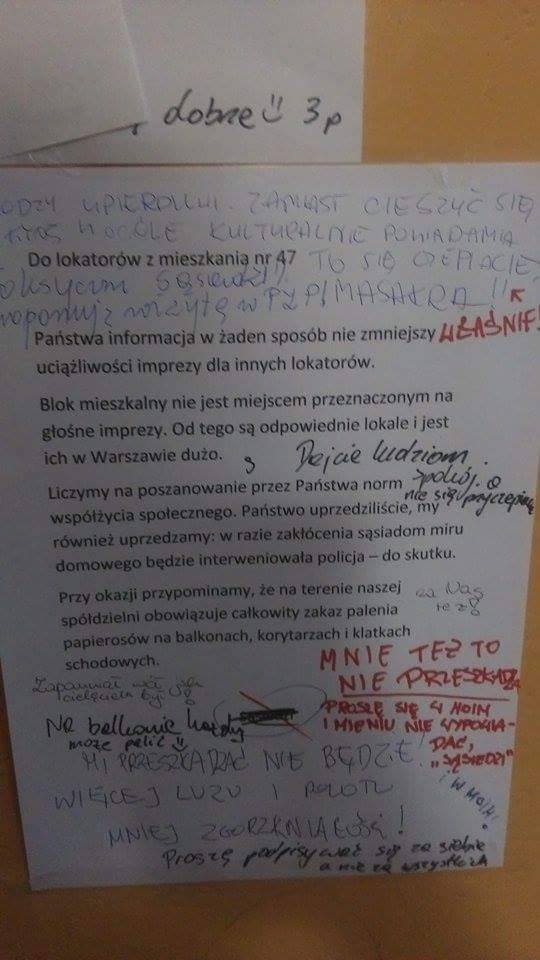 dobrze 3p
UPIERDLIWI. ZAMIAST CIESZYĆ SIĘ
KTOŚ W OGÓLE KULTURALNIE POWIADAMIA
Do lokatorów z mieszkania nr 47 TO SIĘ CZEPIACIE.
SĄSIEDZI!
WIZYTĘ W PZP! MASAKRA!!
Państwa informacja w żaden sposób nie zmniejszy WŁAŚNIE!
uciążliwości imprezy dla innych lokatorów.
Blok mieszkalny nie jest miejscem przeznaczonym na
głośne imprezy. Od tego są odpowiednie lokale i jest
ich w Warszawie dużo.
Dajcie ludziom
spokój.
nie się przyczepiają
Liczymy na poszanowanie przez Państwa norm
współżycia społecznego. Państwo uprzedziliście, my
również uprzedzamy: w razie zakłócenia sąsiadom miru
domowego będzie interweniowała policja – do skutku.
Przy okazji przypominamy, że na terenie naszej
spółdzielni obowiązuje całkowity zakaz palenia
papierosów na balkonach, korytarzach i klatkach
schodowych.
za Nas
też!
MNIE TEŻ TO
NIE PRZESZKADZA
PROSZĘ SIĘ W MOIM
IMIENIU NIE WYPOWIA-
DAĆ,
„SĄSIEDZI”
i W MOIM!
Zapomniał wół jak
cielęciem był!
Na balkonie każdy
może palić
MI PRZESZKADZAĆ NIE BĘDZIE!
WIĘCEJ LUZU I POLOTU
MNIEJ ZGORZKNIAŁOŚCI!
Proszę podpisywać się za siebie
a nie za wszystkich